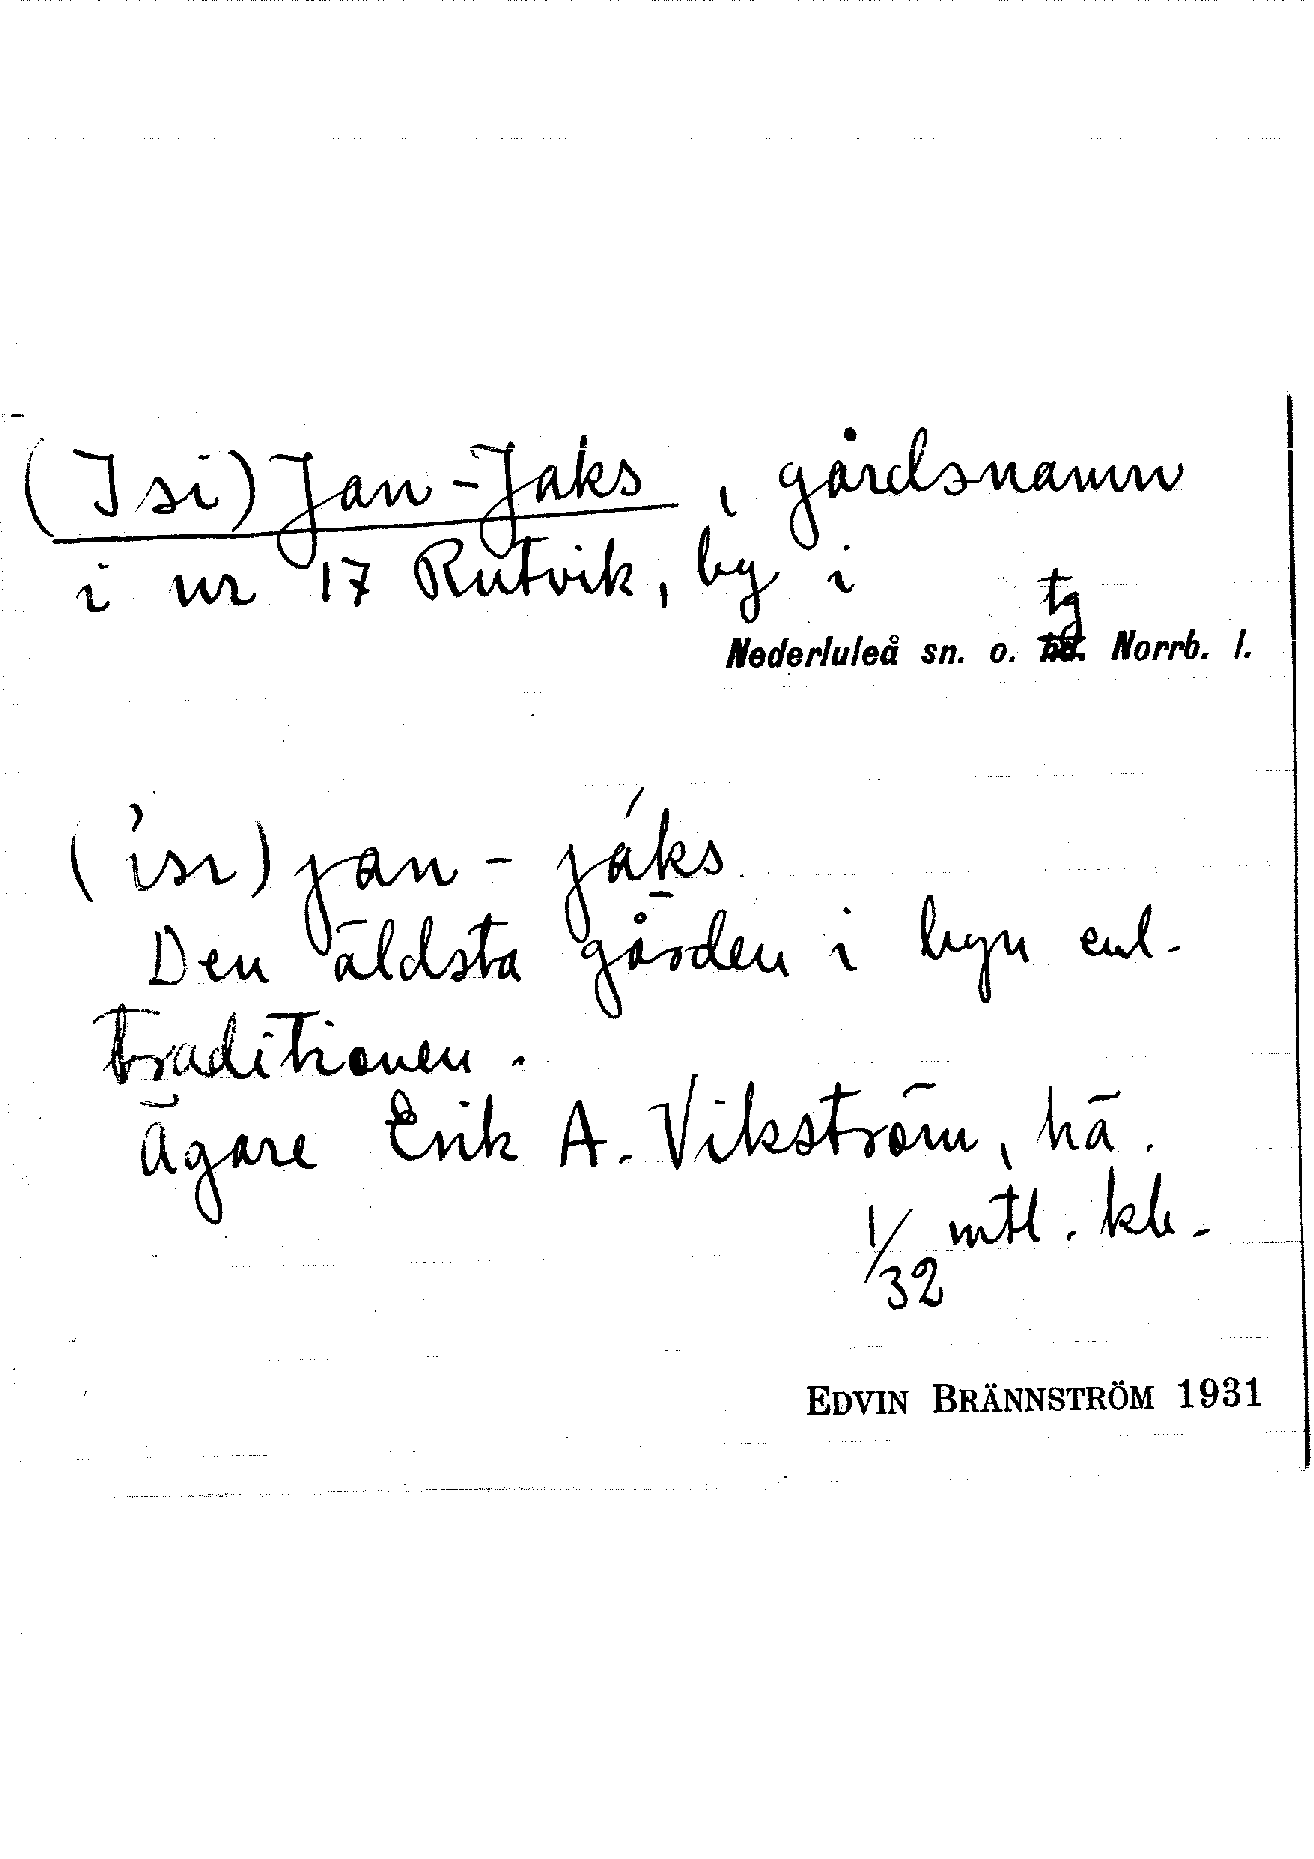 (Isi) Jan-Jaks, gårdsnamn
i nr 17 Rutvik, by i
tg
Nederluleå sn. o. hd. Norrb. l.
(ísı) jan - já̱ks
Den äldsta gården i byn enl.
traditionen.
Ägare Erik A. Vikström, hä.
1/32 mtl. kb.
EDVIN BRÄNNSTRÖM 1931